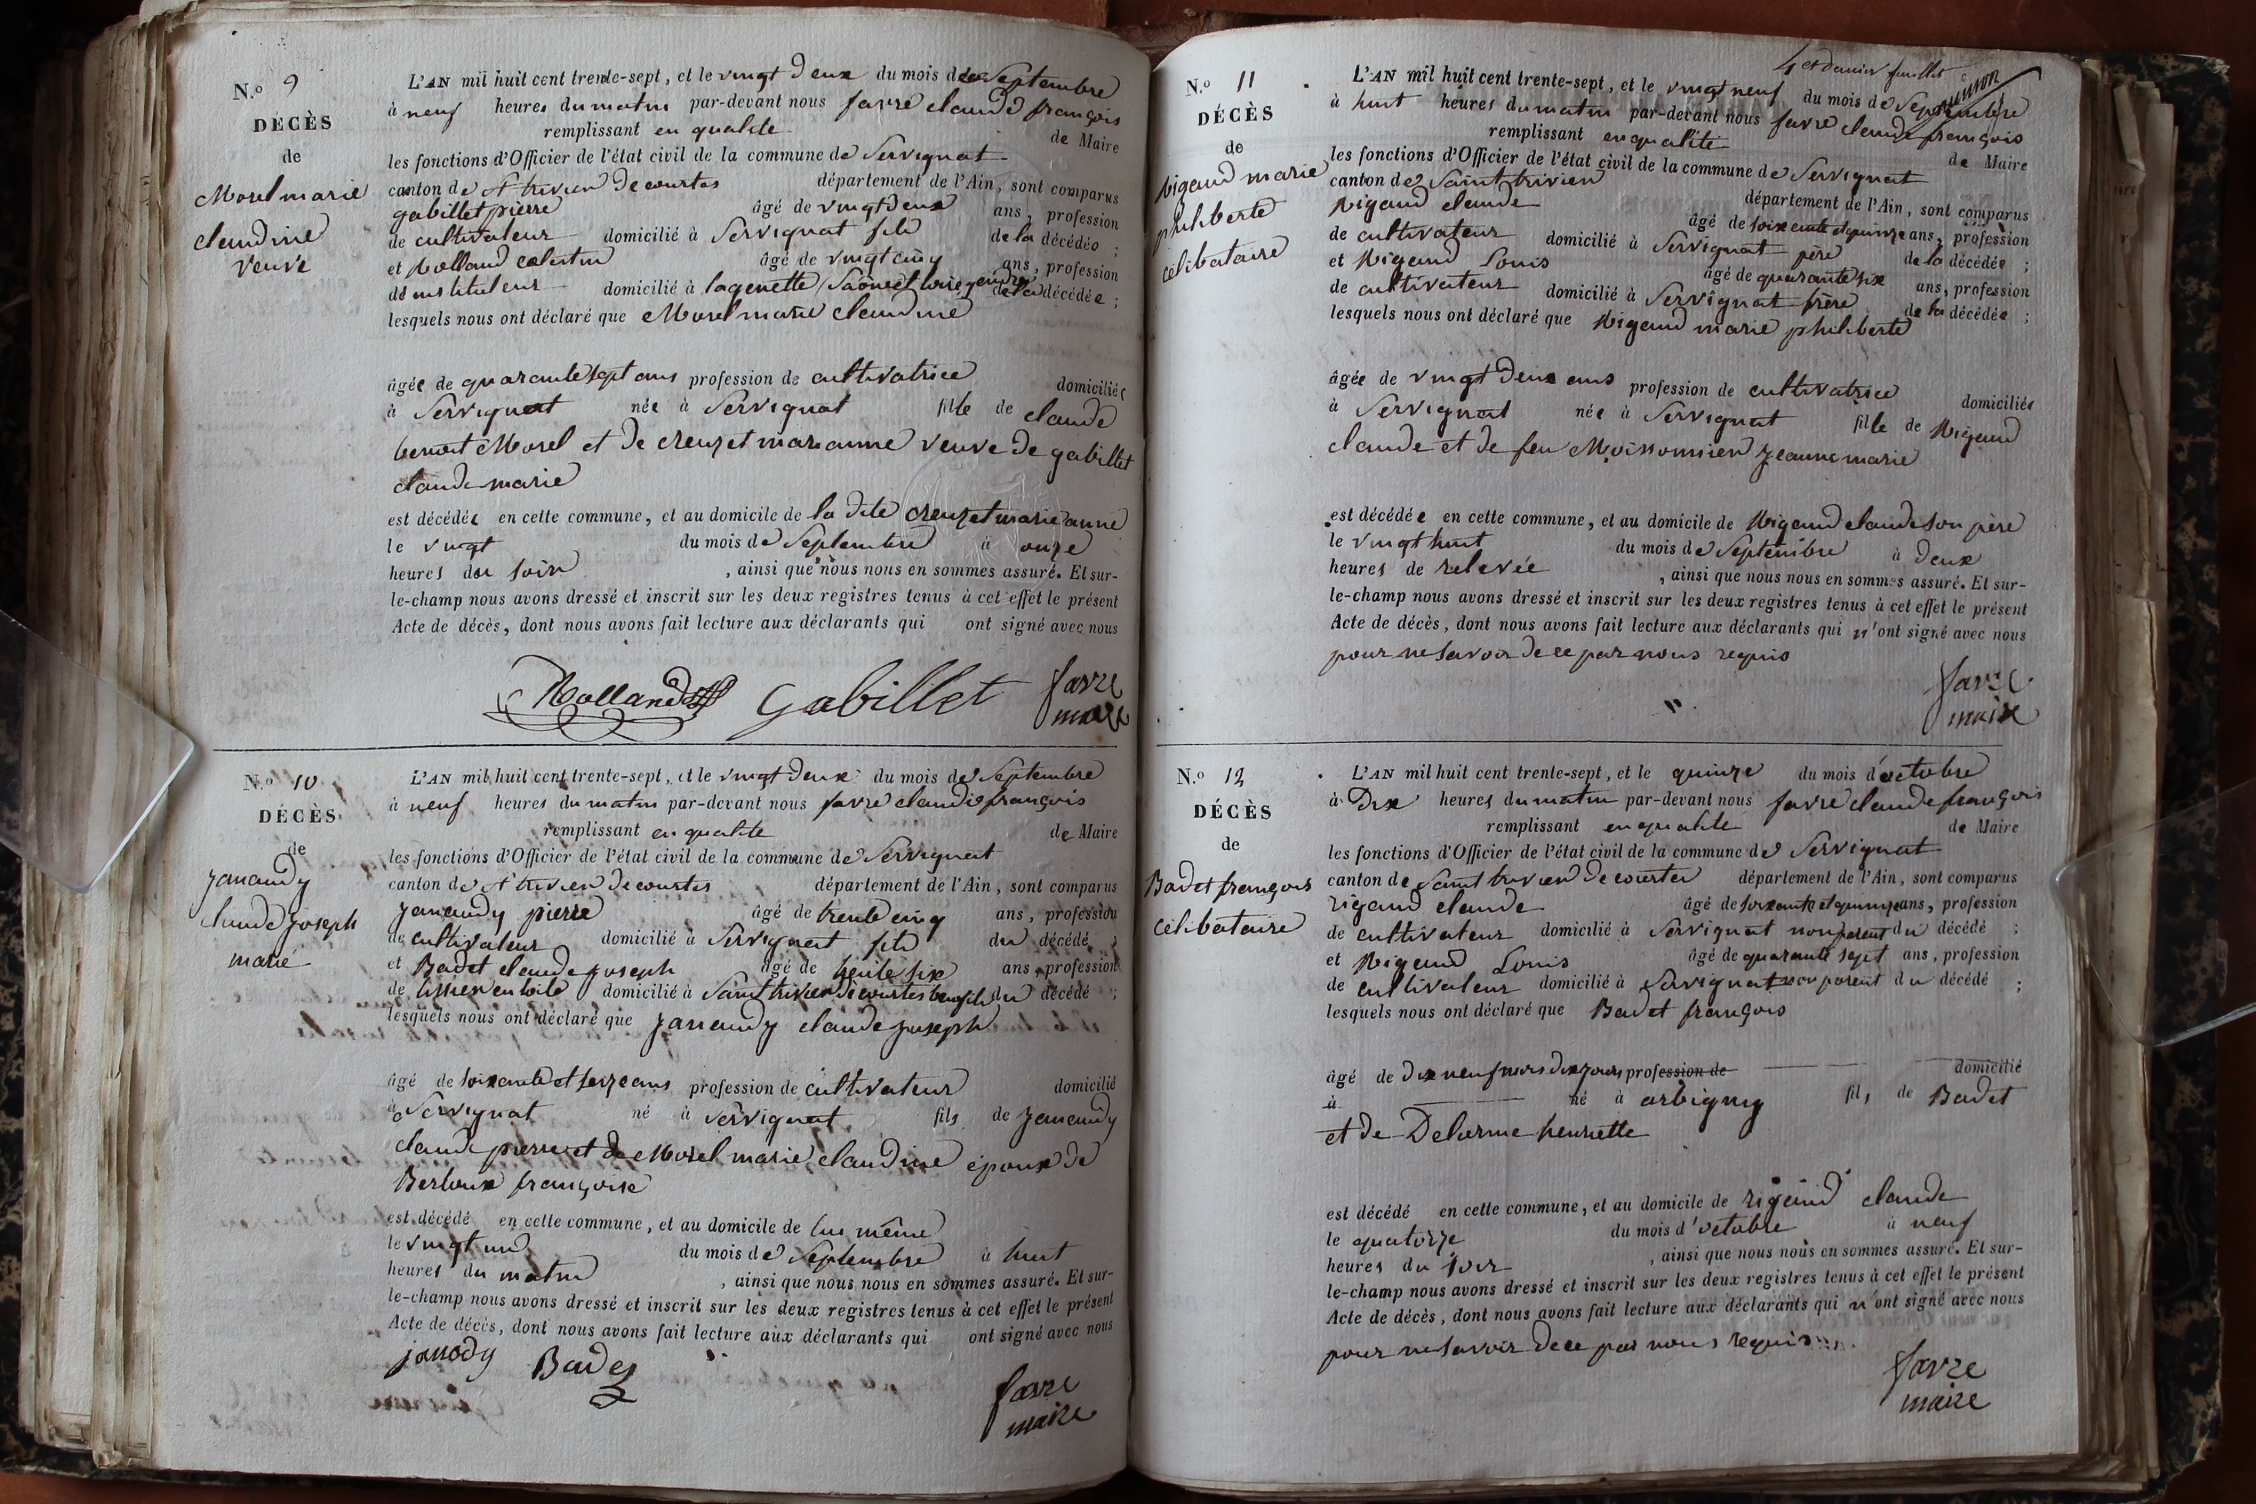 N.o 9
DÉCÈS
de
Morel marie
claudine
veuve
L'AN mil huit cent trente-sept, et le vingt deux du mois de Septembre
à neuf heures du matin par-devant nous favre claude françois
remplissant en qualité de Maire
les fonctions d'Officier de l'état civil de la commune de Servignat
canton de St trivier de courtes département de l'Ain, sont comparus
gabillet pierre âgé de vingt deux ans, profession
de cultivateur domicilié à Servignat fils de la décédée ;
et Rolland celestin âgé de vingt cinq ans, profession
d'instituteur domicilié à lagenette (Saône et loire) gendre de la décédée ;
lesquels nous ont déclaré que Morel marie claudine
âgée de quarante sept ans profession de cultivatrice domiciliée
à Servignat née à Servignat fille de claude
benoit Morel et de creuzet marianne veuve de gabillet
claude marie
est décédée en cette commune, et au domicile de la dite creuzet marie anne
le vingt du mois de Septembre à onze
heures du soir , ainsi que nous nous en sommes assuré. Et sur-
le-champ nous avons dressé et inscrit sur les deux registres tenus à cet effet le présent
Acte de décès, dont nous avons fait lecture aux déclarants qui ont signé avec nous
Rolland gabillet favre
maire
N.o 10
DÉCÈS
de
Janaudy
claude joseph
marié
L'AN mil huit cent trente-sept, et le vingt deux du mois de Septembre
à neuf heures du matin par-devant nous favre claude françois
remplissant en qualité de Maire
les fonctions d'Officier de l'état civil de la commune de Servignat
canton de St trivier de courtes département de l'Ain, sont comparus
Janaudy pierre âgé de trente cinq ans, profession
de cultivateur domicilié à Servignat fils du décédé ;
et Badet claude joseph âgé de trente six ans, profession
de tissier en toile domicilié à Saint trivier de courtes beau fils du décédé ;
lesquels nous ont déclaré que Janaudy claude joseph
âgé de soixante et seize ans profession de cultivateur domicilié
à Servignat né à Servignat fils de Janaudy
claude pierre et de Morel marie claudine époux de
Berloux françoise
est décédé en cette commune, et au domicile de lui même
le vingt un du mois de Septembre à huit
heures du matin , ainsi que nous nous en sommes assuré. Et sur-
le-champ nous avons dressé et inscrit sur les deux registres tenus à cet effet le présent
Acte de décès, dont nous avons fait lecture aux déclarants qui ont signé avec nous
janody Badez favre
maire
4 et dernier feuillet
N.o 11
DÉCÈS
de
Rigaud marie
philiberte
célibataire
L'AN mil huit cent trente-sept, et le vingt neuf du mois de Septembre
à huit heures du matin par-devant nous favre claude françois
remplissant en qualité de Maire
les fonctions d'Officier de l'état civil de la commune de Servignat
canton de Saint trivier département de l'Ain, sont comparus
Rigaud claude âgé de soixante et quinze ans, profession
de cultivateur domicilié à Servignat père de la décédée ;
et Rigaud Louis âgé de quarante six ans, profession
de cultivateur domicilié à Servignat frère de la décédée ;
lesquels nous ont déclaré que Rigaud marie philiberte
âgée de vingt deux ans profession de cultivatrice domiciliée
à Servignat née à Servignat fille de Rigaud
claude et de feu Moissonnier jeanne marie
est décédée en cette commune, et au domicile de Rigaud claude son père
le vingt huit du mois de Septembre à deux
heures de relevée , ainsi que nous nous en sommes assuré. Et sur-
le-champ nous avons dressé et inscrit sur les deux registres tenus à cet effet le présent
Acte de décès, dont nous avons fait lecture aux déclarants qui n'ont signé avec nous
pour ne savoir de ce par nous requis
favre
maire
N.o 12
DÉCÈS
de
Badet françois
célibataire
L'AN mil huit cent trente-sept, et le quinze du mois d'octobre
à Dix heures du matin par-devant nous favre claude françois
remplissant en qualité de Maire
les fonctions d'Officier de l'état civil de la commune de Servignat
canton de Saint trivier de courtes département de l'Ain, sont comparus
rigaud claude âgé de soixante et quinze ans, profession
de cultivateur domicilié à Servignat non parent du décédé ;
et Rigaud Louis âgé de quarante sept ans, profession
de cultivateur domicilié à Servignat non parent du décédé ;
lesquels nous ont déclaré que Badet françois
âgé de dix neuf mois dix jours profession de domicilié
à né à arbigny fils de Badet
et de Delorme henriette
est décédé en cette commune, et au domicile de rigaud claude
le quatorze du mois d'octobre à neuf
heures du soir , ainsi que nous nous en sommes assuré. Et sur-
le-champ nous avons dressé et inscrit sur les deux registres tenus à cet effet le présent
Acte de décès, dont nous avons fait lecture aux déclarants qui n'ont signé avec nous
pour ne savoir de ce par nous requis
favre
maire